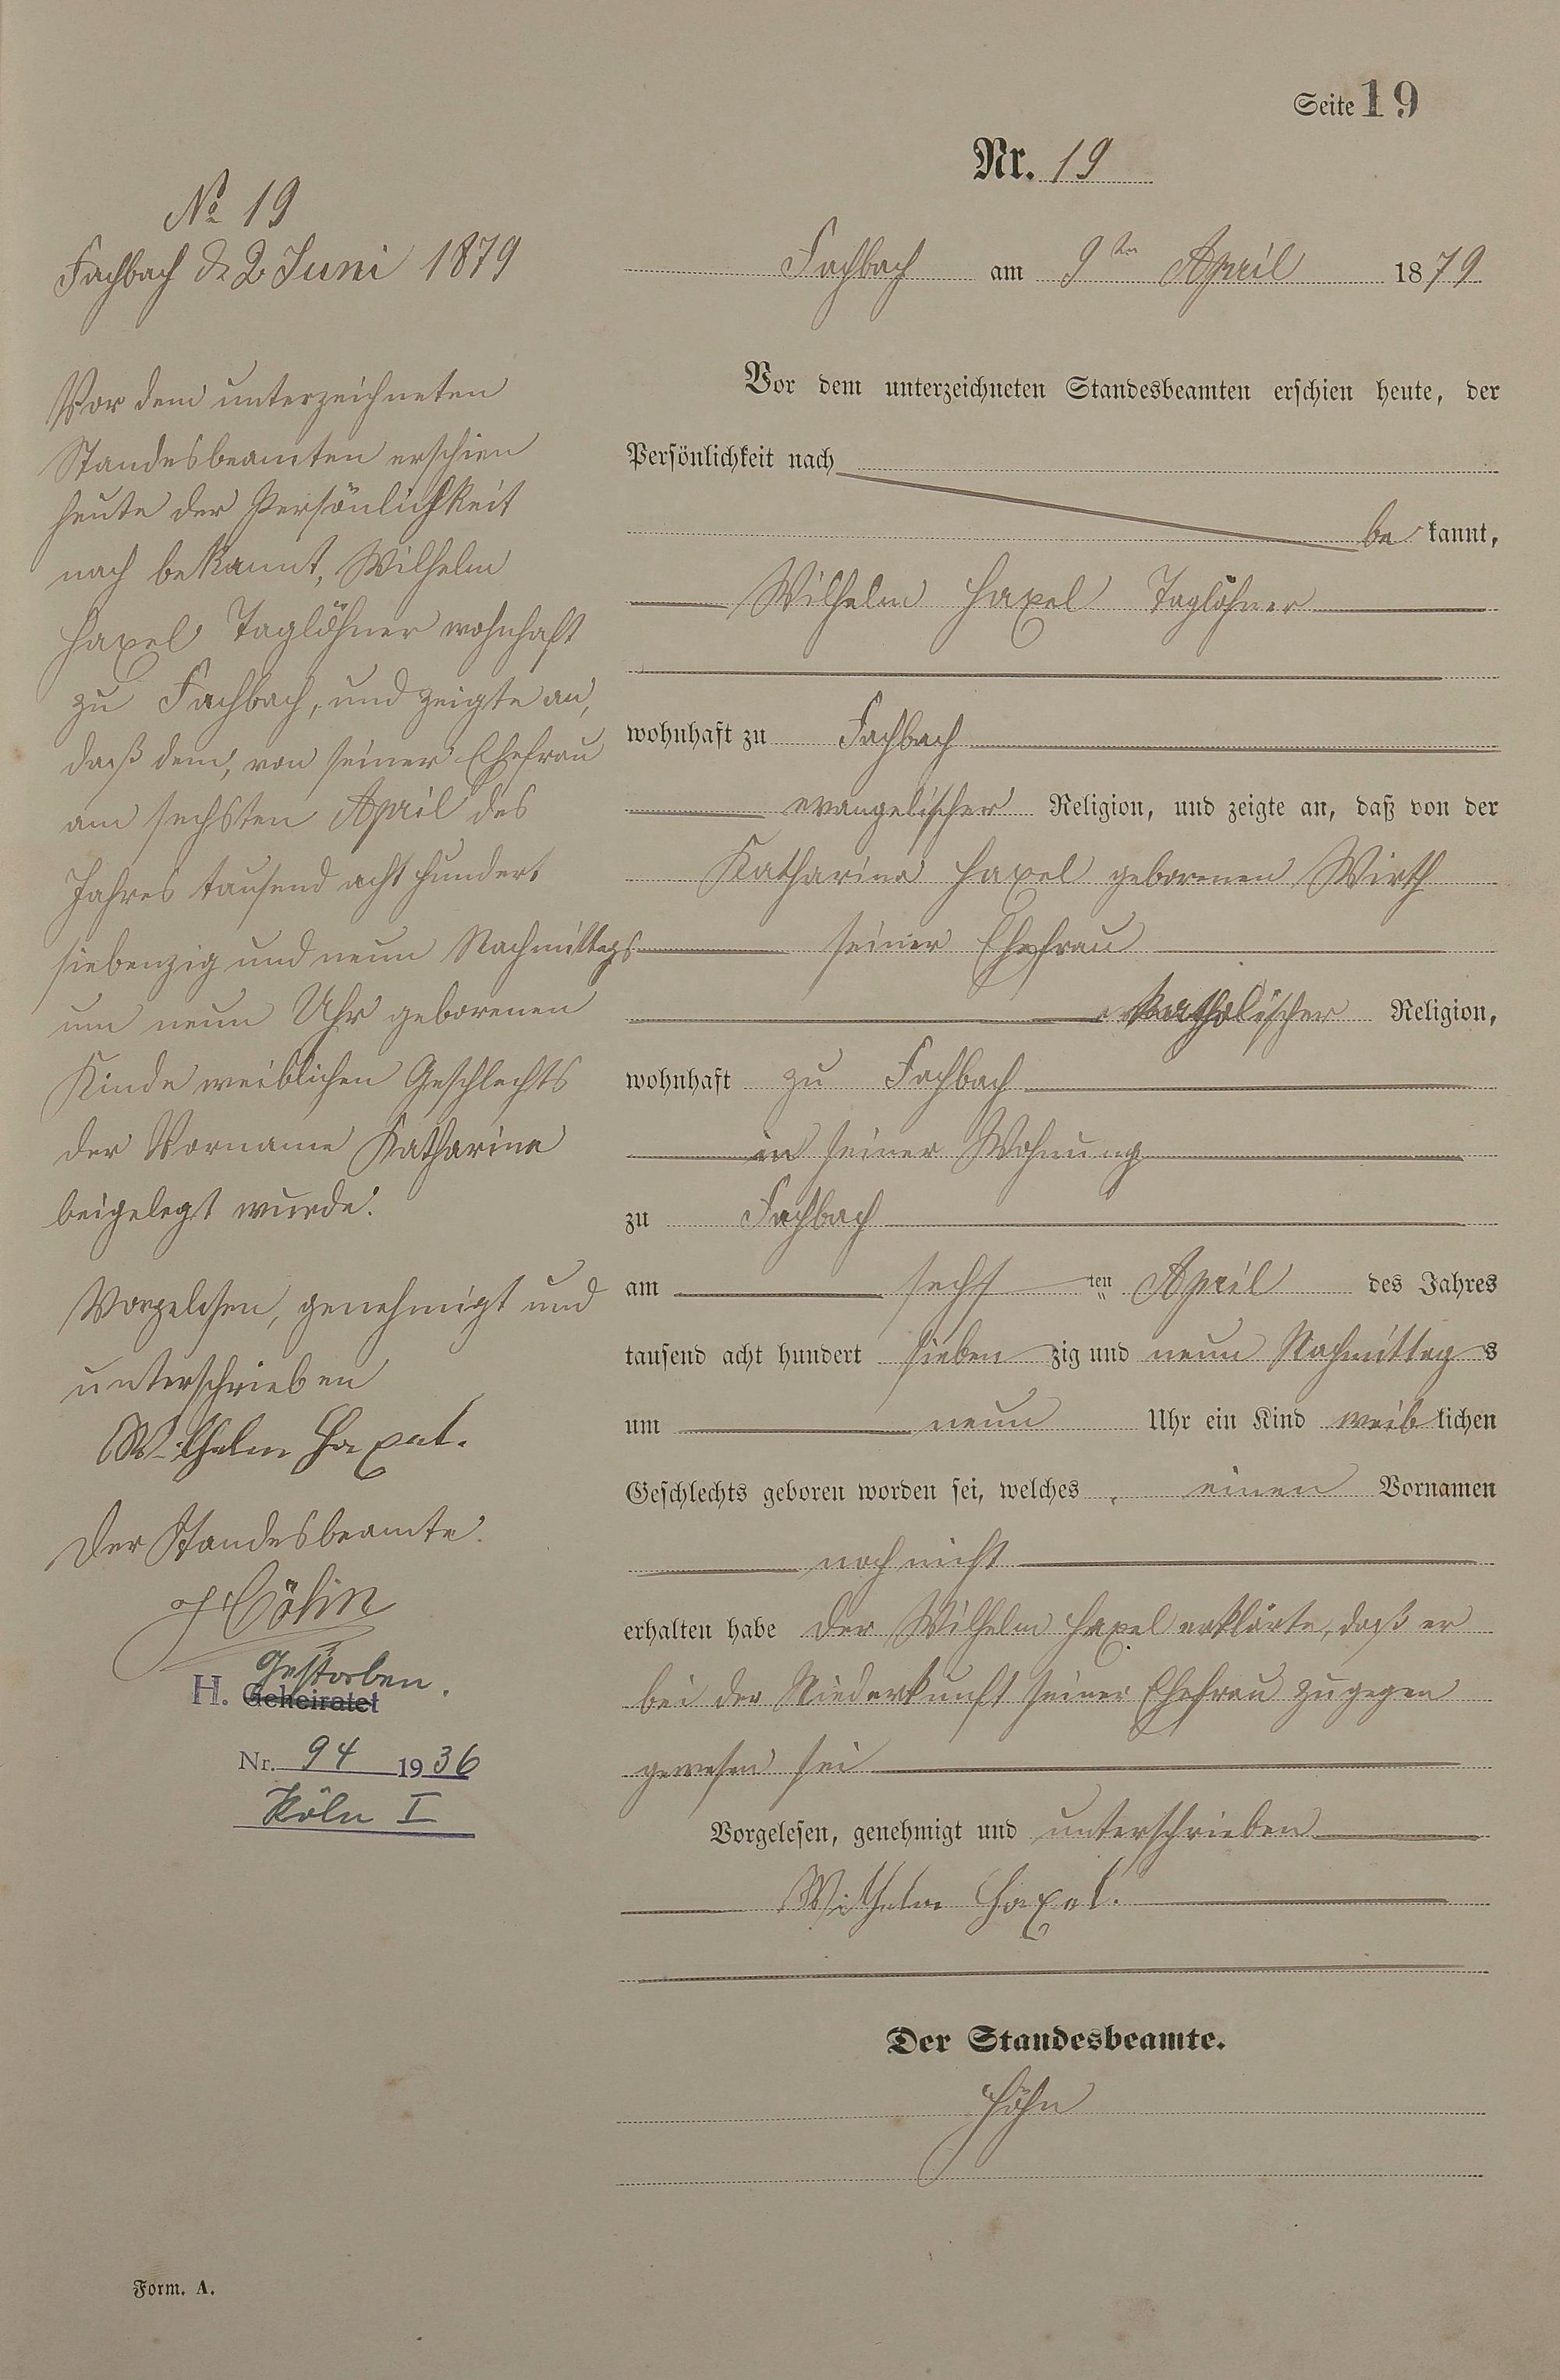 Seite 19
Nr. 19
Fachbach am 9ten April 1879
Vor dem unterzeichneten Standesbeamten erschien heute, der
Persönlichkeit nach
be kannt,
Wilhelm Haxel Taglöhner
wohnhaft zu Fachbach
evangelischer Religion, und zeigte an, daß von der
Katharina Haxel geborenen Wirth
seiner Ehefrau
katholischer Religion,
wohnhaft zu Fachbach
in seiner Wohnung
zu Fachbach
am sechsten April des Jahres
tausend acht hundert sieben zig und neun Nachmittag s
um neun Uhr ein Kind weib lichen
Geschlechts geboren worden sei, welches einen Vornamen
noch nicht
erhalten habe der Wilhelm Haxel erklärte, daß er
bei der Niederkunft seiner Ehefrau zugegen
gewesen sei
Vorgelesen, genehmigt und unterschrieben
Wilhelm Haxel.
Der Standesbeamte.
Höhn
No 19
Fachbach d. 2 Juni 1879
Vor dem unterzeichneten
Standesbeamten erschien
heute der Persönlichkeit
nach bekannt, Wilhelm
Haxel Taglöhner wohnhaft
zu Fachbach, und zeigte an,
daß dem, von seiner Ehefrau
am sechsten April des
Jahres tausend acht hundert
siebenzig und neun Nachmittags
um neun Uhr geborenen
Kinde weiblichen Geschlechts
der Vorname Katharina
beigelegt wurde.
Vorgelesen, genehmigt und
unterschrieben
Wilhelm Haxel.
Der Standesbeamte.
Höhn
Gestorben.
H. Geheiratet
Nr. 94 1936
Köln I
Form. A.